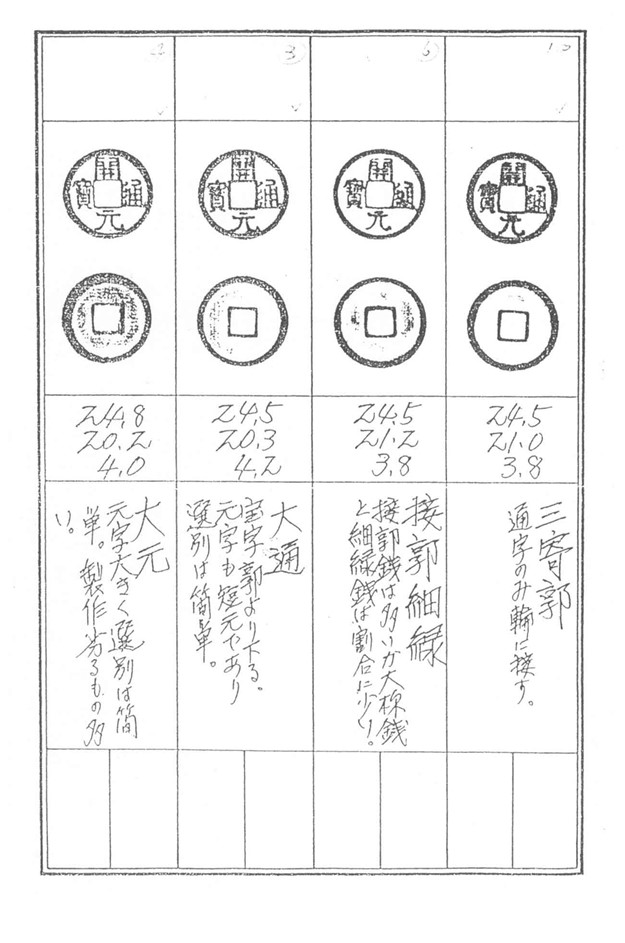 10
6
3
2
開元通寳
開元通寳
開元通寳
開元通寳
24.5
21.0
3.8
24.5
21.2
3.8
24.5
20.3
4.2
24.8
20.2
4.0
三寄郭
通字のみ輪に接す。
接郭細縁
接郭銭は多いが大様銭
と細縁銭は割合に少い。
大通
宝字郭より下る。
元字も短元であり
選別は簡単。
大元
元字大きく選別は簡
単。製作劣るもの多
い。